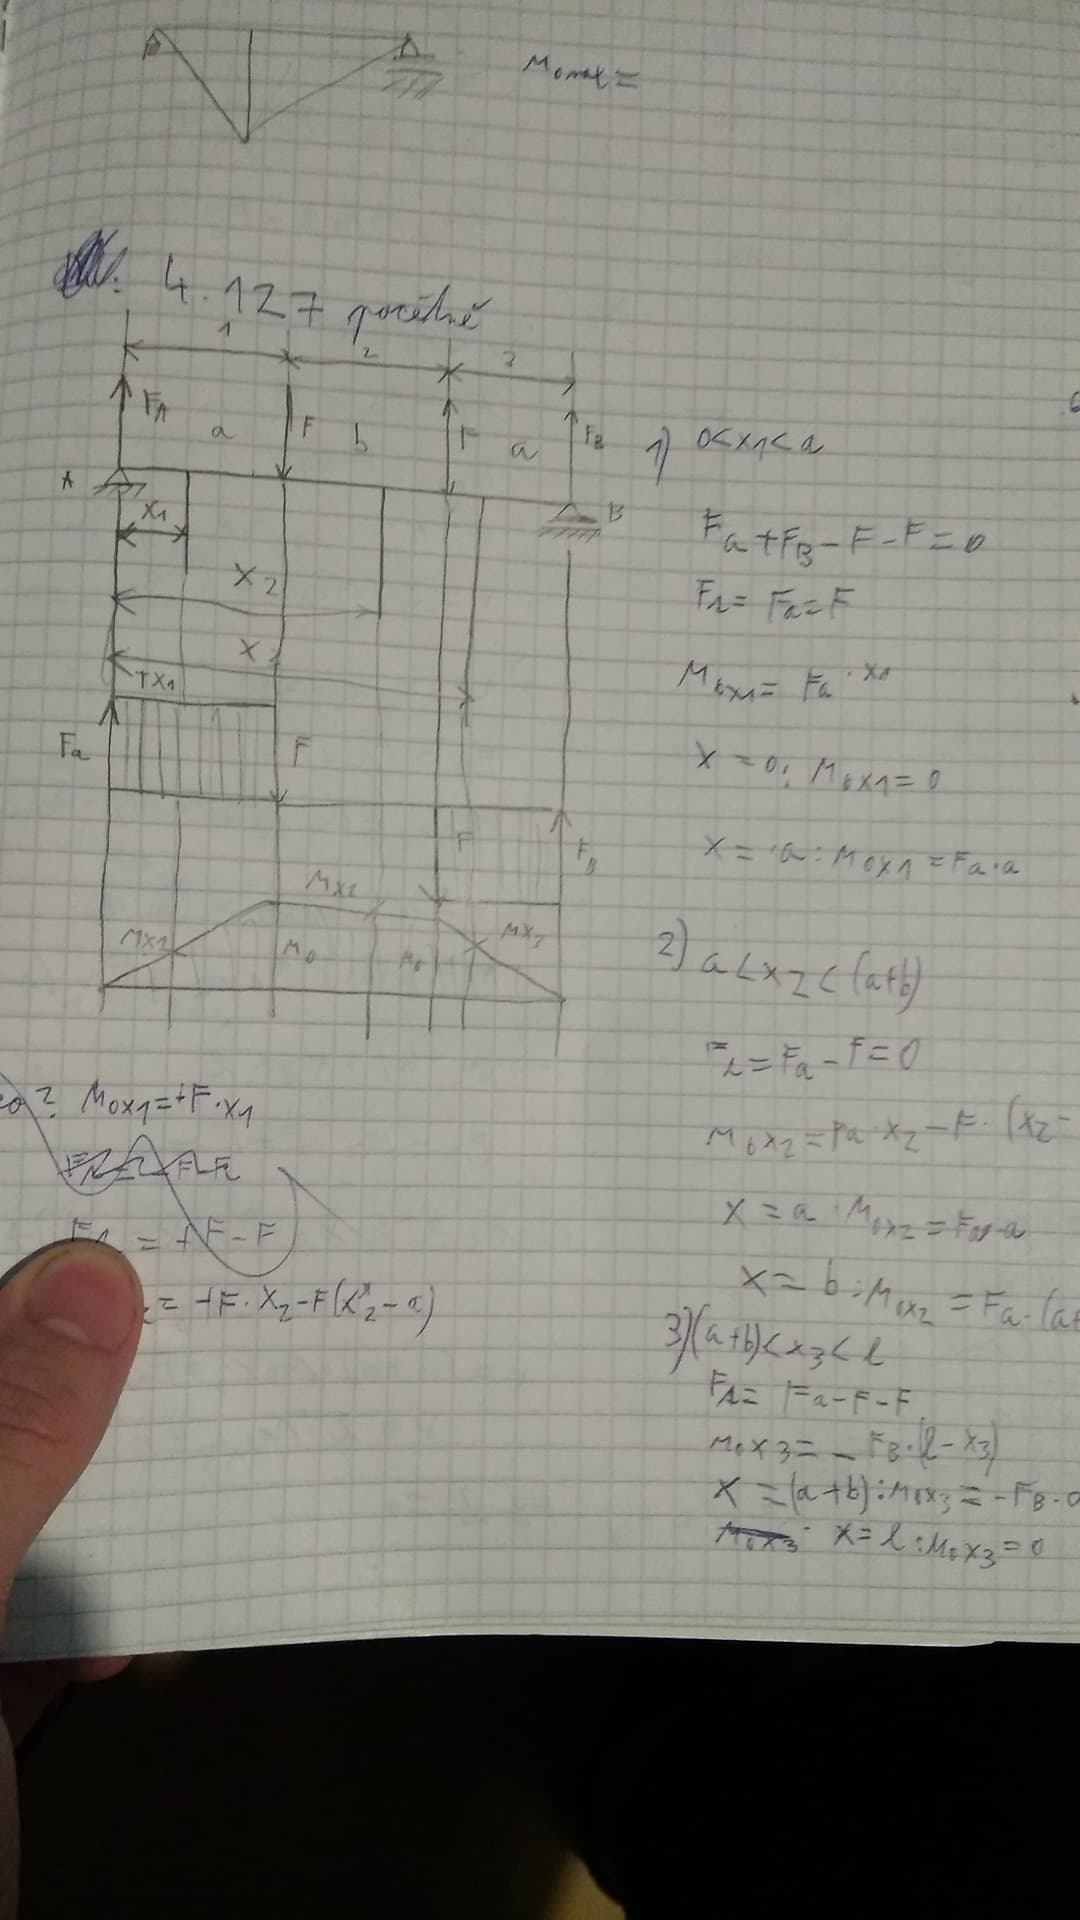 Momax =
4.127 početně
1 2 3
FA F F FB
a b a
A B
x1
x2
x
+x1
Fa F
F FB
Mx2
Mx2 Mo Mo Mx3
1) 0<x1<a
Fa+FB-F-F=0
= Fa=F
Mox1= Fa·x1
x=0: Mox1=0
x=a: Mox1=Fa·a
2) a<x2<(a+b)
=Fa-F=0
Mox2=Fa·x2-F·(x2-
x=a Mox2=Fa·a
x=b: Mox2=Fa·(a+
3) (a+b)<x3<l
= Fa-F-F
Mox3=-FB·(l-x3)
x=(a+b): Mox3=-FB·a
x=l: Mox3=0
? Mox1=+F·x1
= +F-F
= +F·x2-F(x2-a)